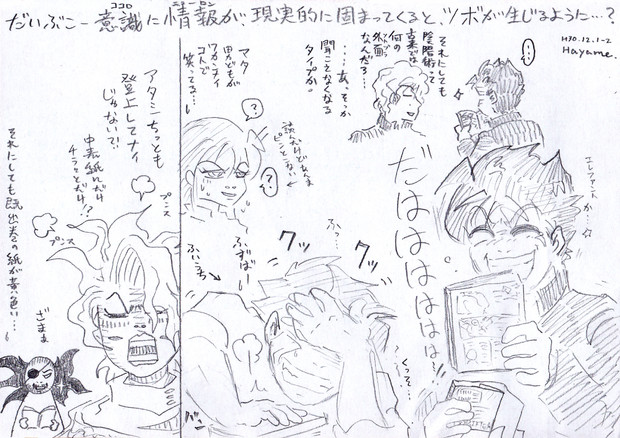 だいぶこー意識に情報が現実的に固まってくると、ツボが生じるように…?
ココロ
H30.12.1-2
Hayame.
…。
それにしても
陰陽術って
古来では
何の
外面
なんだろ…
……あ、そっか
聞こえなくなる
タイプか。
エレファントか…
だはははははは…!
くっそ…
?
?
読んだけどあんま
ピンとこない
マタ
田がどもが
ワカンナイ
コトで
笑ってる…
ふ…
クッ
クッ
ふずばい
ふいごっ
バン
アタシちっとも
登上してナイ
じゃない?!
中表紙にだけ
チラッとだけ!?
プンス
プンス
それにしても既出巻の紙が黄色い…
ざまぁ